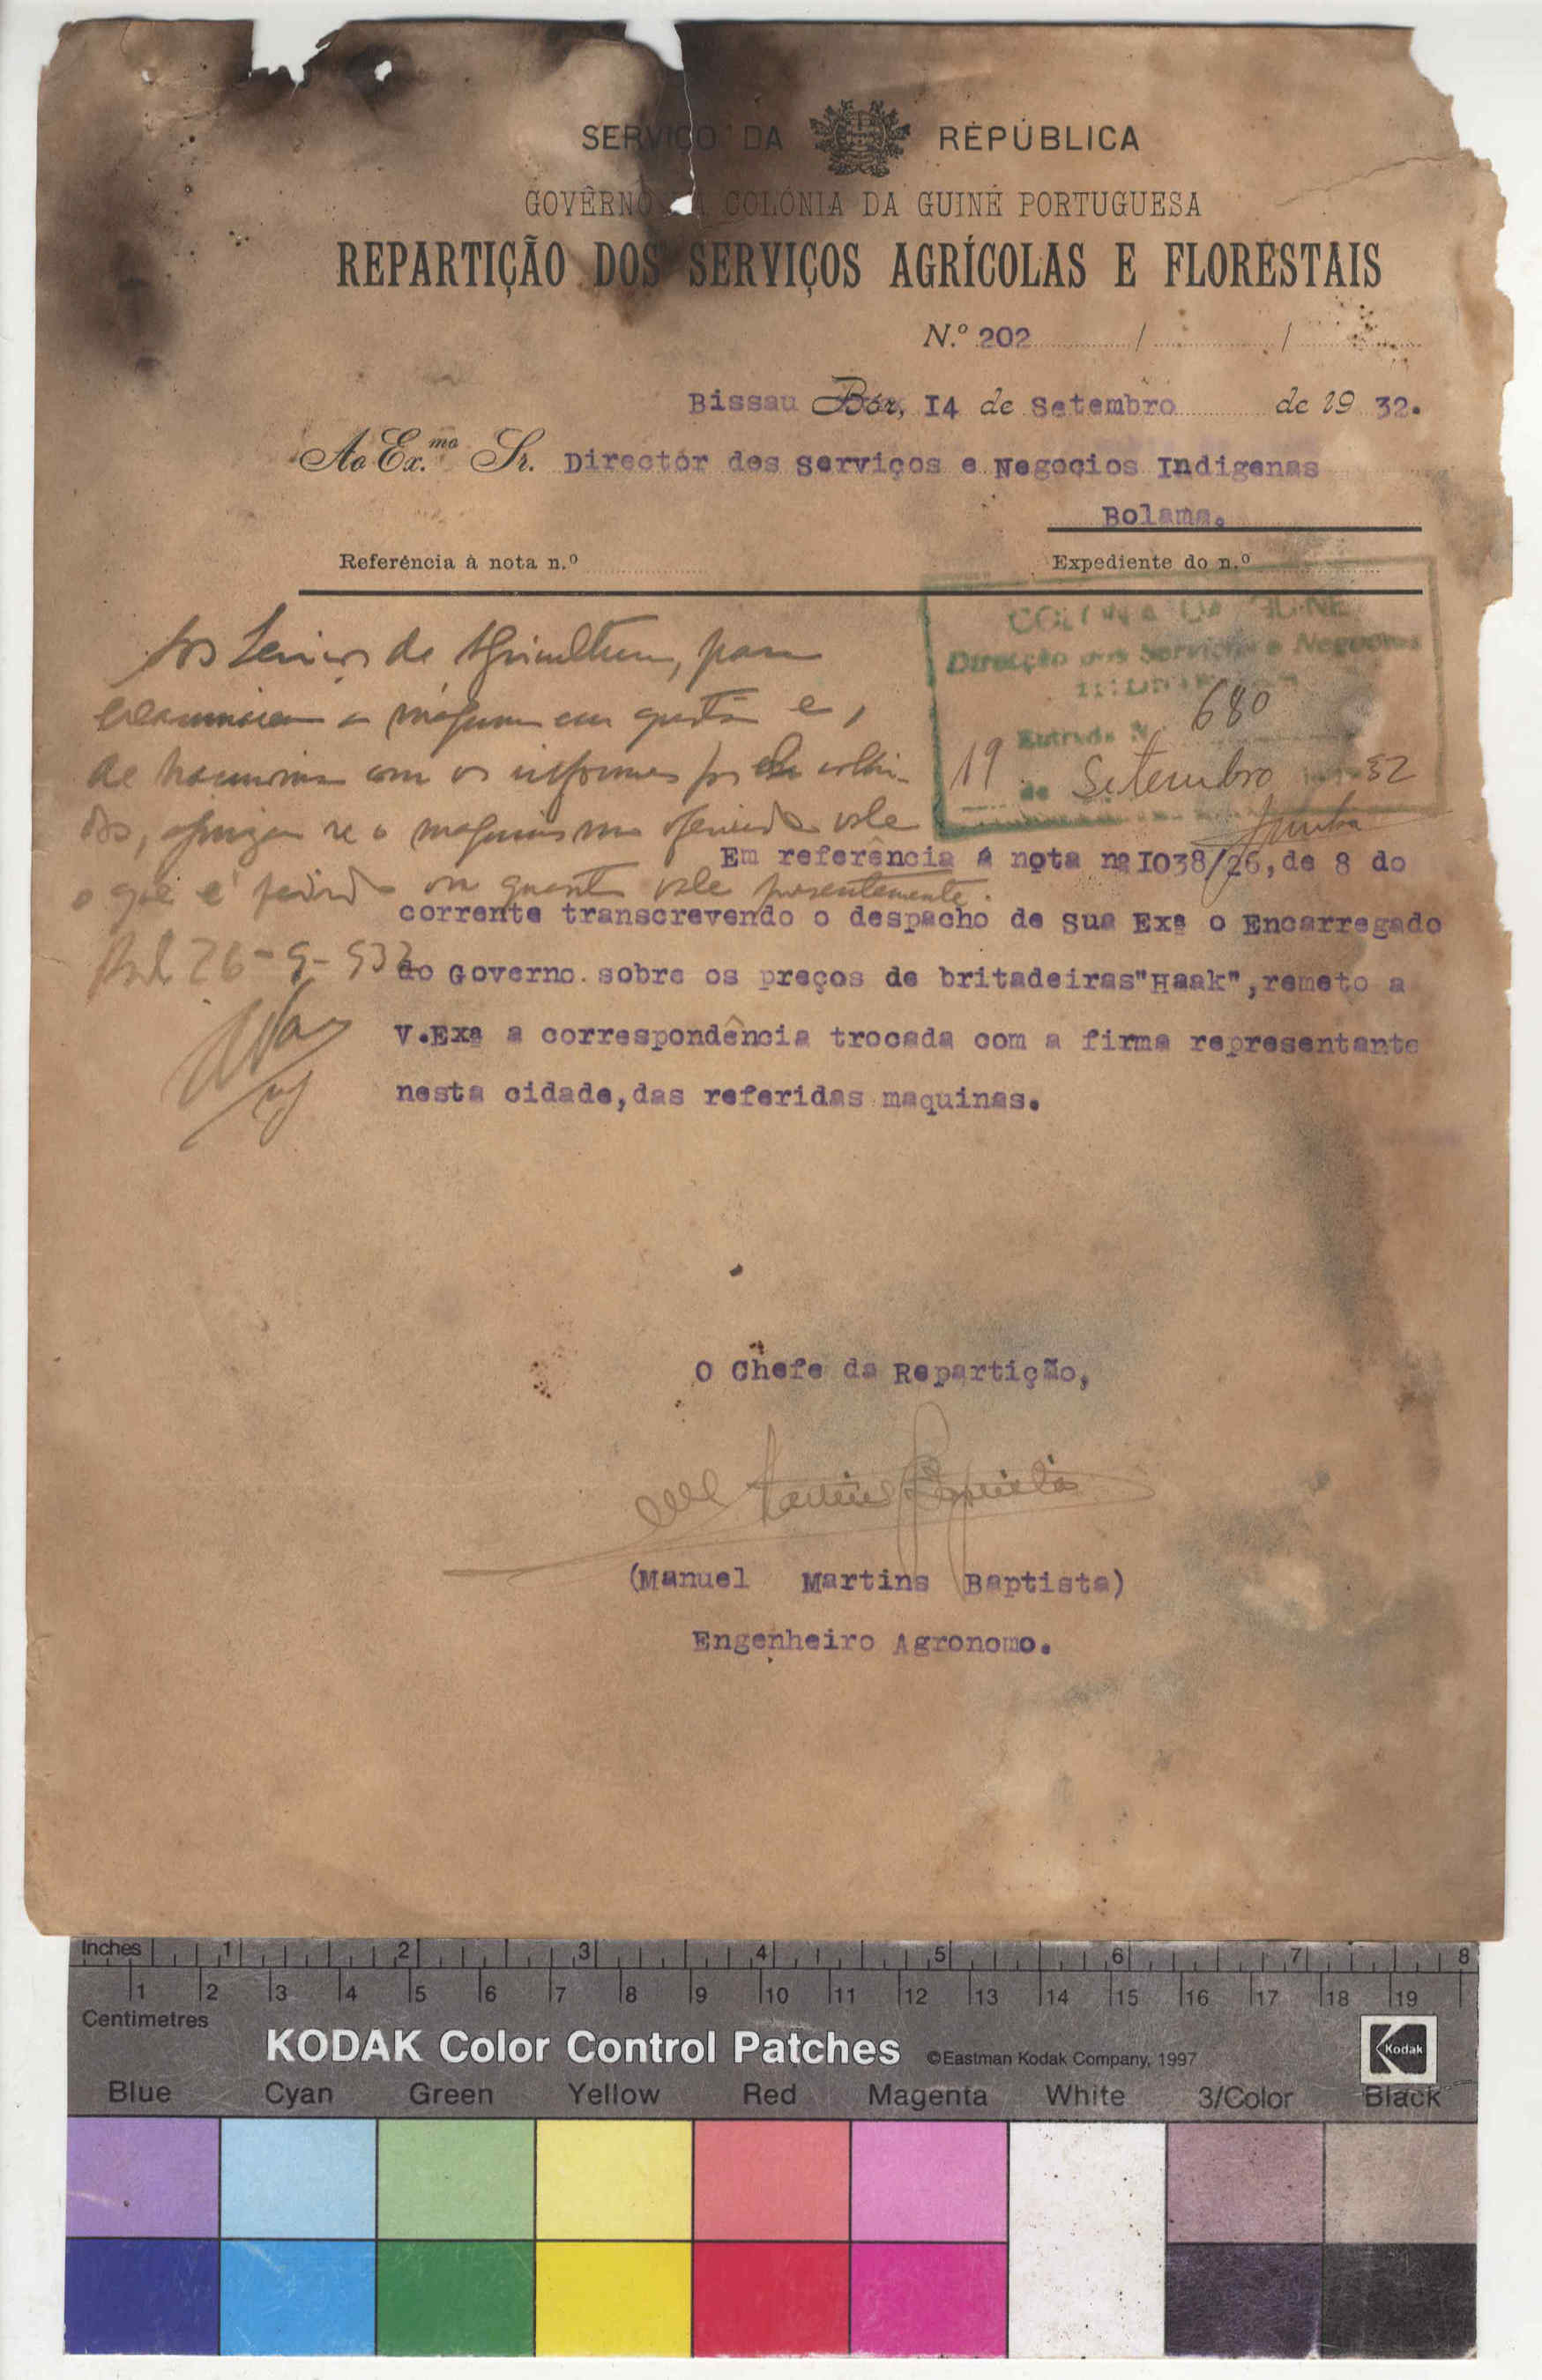 SERVIÇO DA REPÚBLICA
GOVÊRNO DA COLÓNIA DA GUINÉ PORTUGUESA
REPARTIÇÃO DOS SERVIÇOS AGRÍCOLAS E FLORESTAIS
N.º 202 / /
Bissau Bór, I4 de Setembro de 19 32.
Ao Ex.mo Sr. Directór dos Serviços e Negocios Indigenas
Bolama.
Referência à nota n.º
Expediente do n.º
COLONIA DA GUINÉ
Direcção dos Serviços e Negocios
Entrada N. 680
19 de Setembro 32
Aos Serviços de Agricultura, para
examinarem a máquina em questão e,
de harmonia com os informes por ela colhi-
dos, se o maquinismo oferecido vale
o que é pedido ou quanto vale presentemente.
26-9-932
Em referência á nota nº I038/26, de 8 do
corrente transcrevendo o despacho de Sua Exª o Encarregado
do Governo. sobre os preços de britadeiras"Haak", remeto a
V.Exª a correspondência trocada com a firma representante
nesta cidade, das referidas maquinas.
O Chefe da Repartição,
Martins Baptista
(Manuel Martins Baptista)
Engenheiro Agronomo.
Inches 1 2 3 4 5 6 7 8
1 2 3 4 5 6 7 8 9 10 11 12 13 14 15 16 17 18 19
Centimetres
KODAK Color Control Patches ©Eastman Kodak Company, 1997 Kodak
Blue Cyan Green Yellow Red Magenta White 3/Color Black